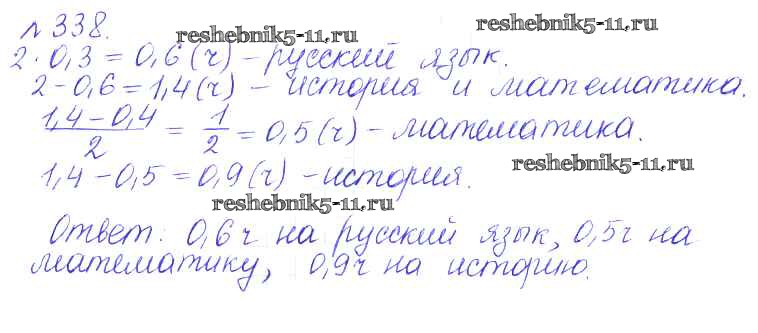 №338.
reshebnik5-11.ru
reshebnik5-11.ru
2·0,3=0,6(ч)-русский язык.
2-0,6=1,4(ч)-история и математика.
(1,4-0,4)/2=1/2=0,5(ч)-математика.
reshebnik5-11.ru
1,4-0,5=0,9(ч)-история.
reshebnik5-11.ru
Ответ: 0,6ч на русский язык, 0,5ч на
математику, 0,9ч на историю.